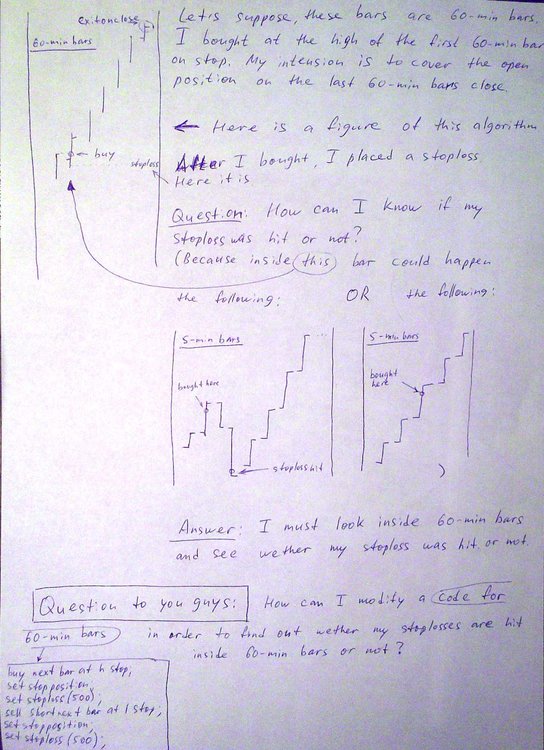 exitonclose
60-min bars
buy
stoploss
Let's suppose, these bars are 60-min bars.
I bought at the high of the first 60-min bar
on stop. My intension is to cover the open
position on the last 60-min bars close.
Here is a figure of this algorithm
After I bought, I placed a stoploss
Here it is
Question: How can I know if my
stoploss was hit or not?
(Because inside this bar could happen
the following: OR the following:
5-min bars
bought here
stoploss hit
5-min bars
bought
here
Answer: I must look inside 60-min bars
and see wether my stoploss was hit or not.
Question to you guys: How can I modify a code for
60-min bars in order to find out wether my stoplosses are hit
inside 60-min bars or not?
buy next bar at h stop;
set stopposition;
set stoploss (500);
sell short next bar at l stop,
set stopposition;
set stoploss (500);